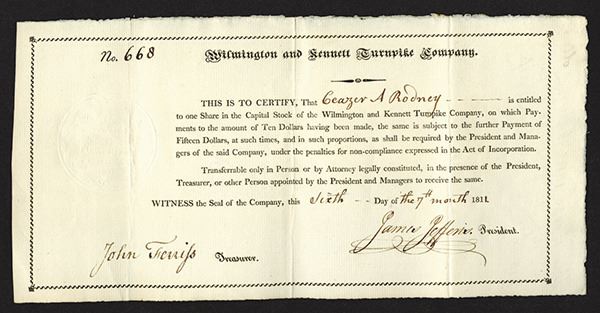 No. 668
Wilmington and Kennett Turnpike Company.
THIS IS TO CERTIFY, That Ceazer A Rodney - - - is entitled
to one Share in the Capital Stock of the Wilmington and Kennett Turnpike Company, on which Pay-
ments to the amount of Ten Dollars having been made, the same is subject to the further Payment of
Fifteen Dollars, at such times, and in such proportions, as shall be required by the President and Mana-
gers of the said Company, under the penalties for non-compliance expressed in the Act of Incorporation.
Transferable only in Person or by Attorney legally constituted, in the presence of the President,
Treasurer, or other Person appointed by the President and Managers to receive the same.
WITNESS the Seal of the Company, this Sixth - - Day of the 7th month 1811.
James Jefferis President.
John Ferriss Treasurer.